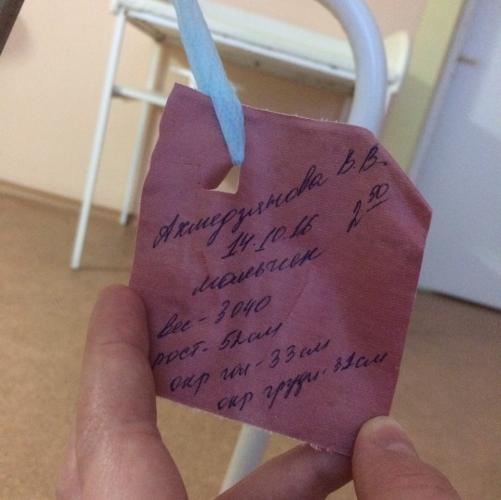 Ахмедзянова В.В.
14.10.16 2 50
мальчик
вес - 3040
рост - 52 см
окр гол - 33 см
окр груди - 32 см